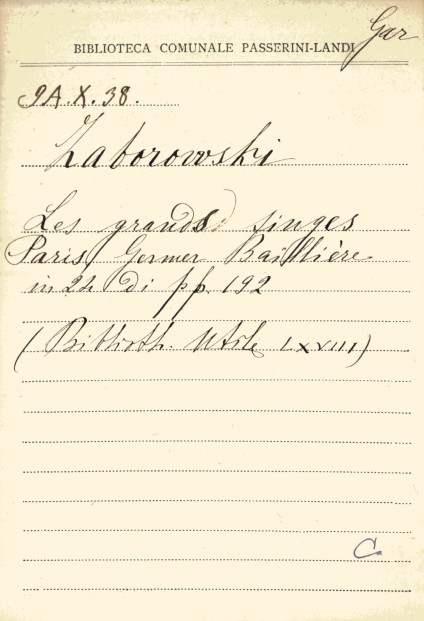 Gar
BIBLIOTECA COMUNALE PASSERINI-LANDI
9A.X.38.
Zaborowski
Les grands singes
Paris, Germer Baillière
in 24 di pp. 192
(Biblioth. Utile LXVIII)
C.